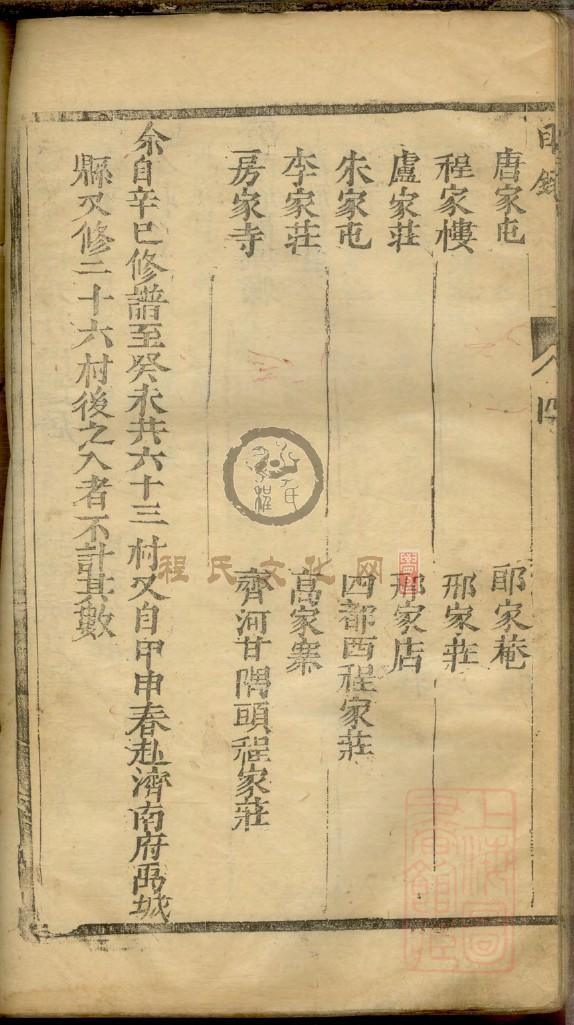 目錄
唐家屯 郎家菴
程家樓 邢家莊
盧家莊 邢家店
朱家屯 四都西程家莊
李家莊 高家寨
房家寺 齊河甘隅頭程家莊
余自辛巳修譜至癸未共六十三村又自甲申春赴濟南府禹城
縣又修二十六村後之入者不計其數
程氏文化网